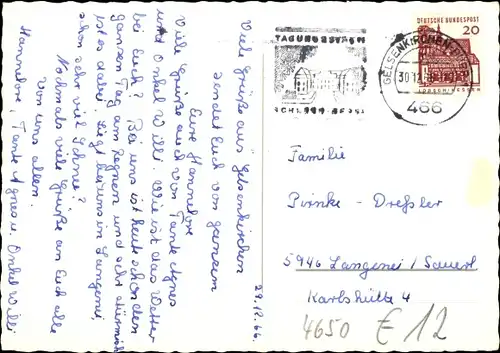 29.12.66.
Viele Grüße aus Gelsenkirchen
sendet Euch von ganzem
Eure Hannelore
Viele Grüße auch von Tante Agnes
und Onkel Willi. Wie ist das Wetter
bei Euch? Bei uns ist heute schon den
ganzen Tag am Regnen und sehr stürmisch
ist es dabei. Liegt bei uns in Langenei,
schon sehr viel Schnee?
Nochmals viele Grüße an Euch alle
von uns allen.
Hannelore Tante Agnes u. Onkel Willi
TAGUNGSSTÄTTE
SCHLOSS BERGE
GELSENKIRCHEN
30.12.
466
DEUTSCHE BUNDESPOST
20
LORSCH/HESSEN
Familie
Pirnke-Dreßler
5946 Langenei / Sauerl
Karlshütte 4
4650 € 12